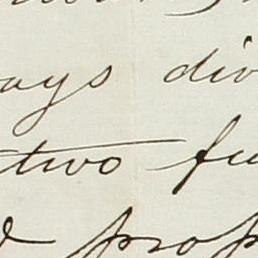 ays div
two fu
d prop